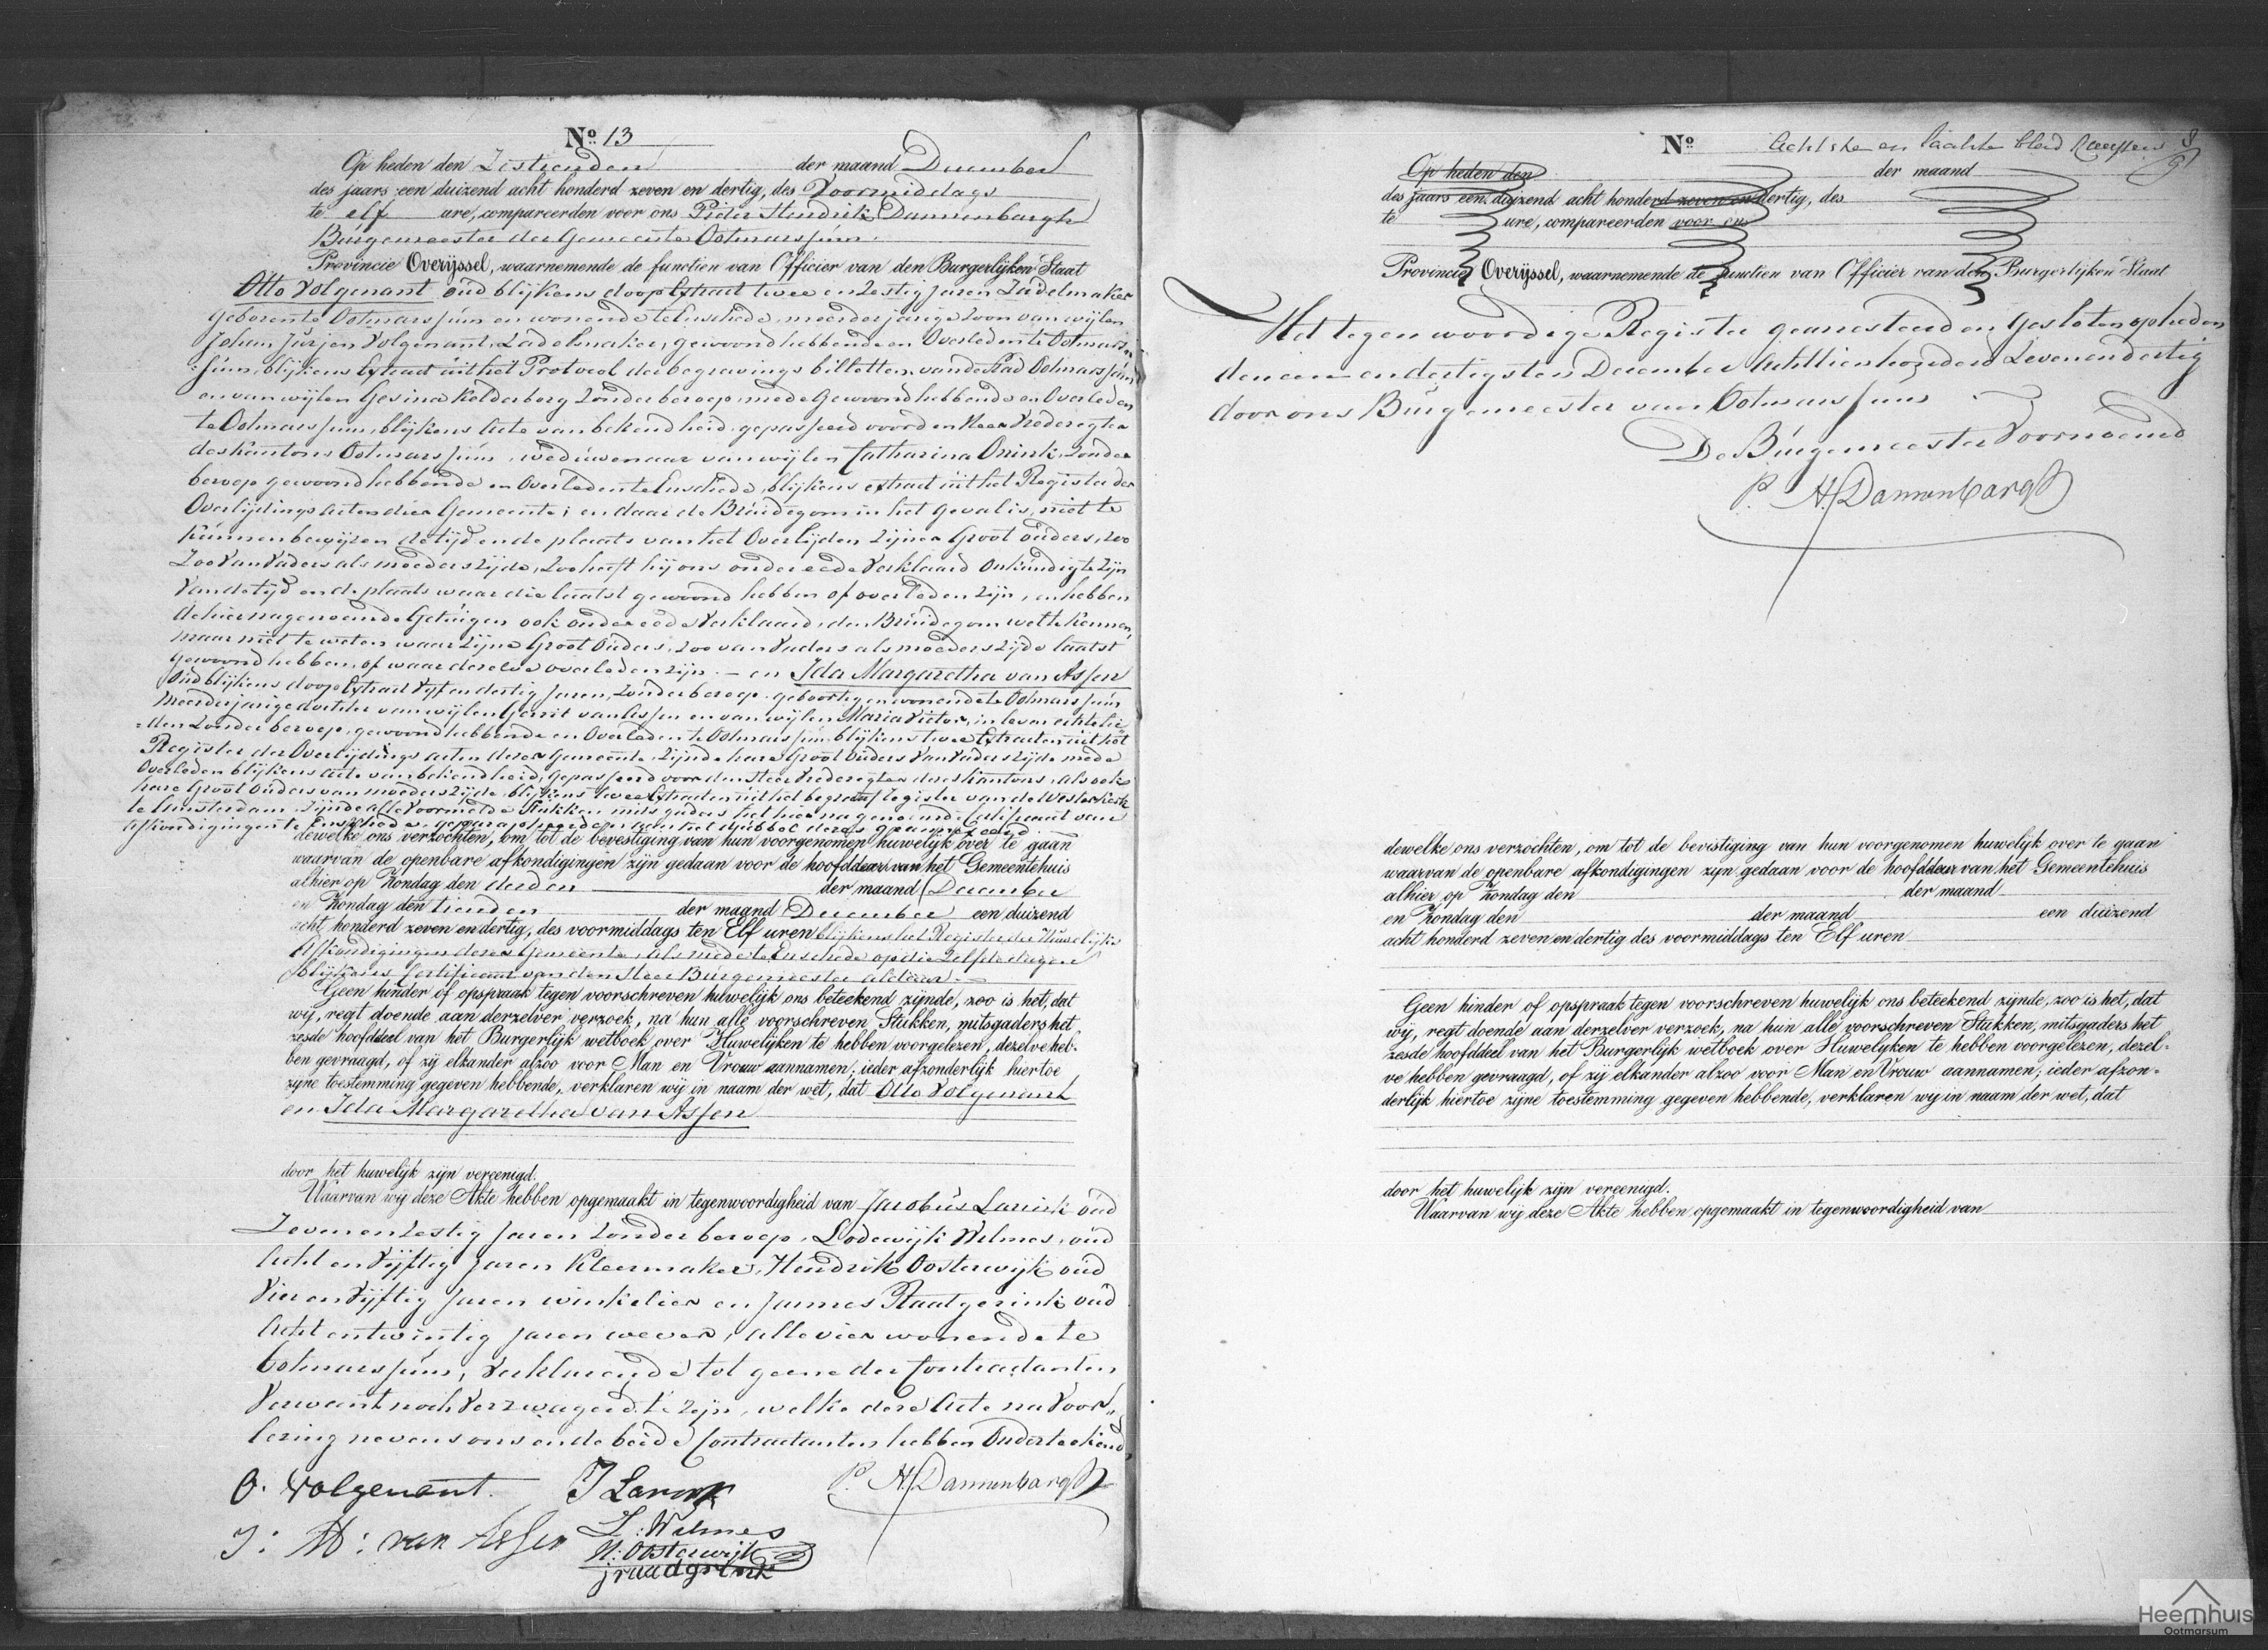 No. 13
Op heden den Zestienden der maand December
des jaars een duizend acht honderd zeven en dertig, des Voormiddags
te elf ure, compareerden voor ons Pieter Hendrik Dannenbargh
Burgemeester der Gemeente Ootmarssum
Provincie Overijssel, waarnemende de functien van Officier van den Burgerlijken Staat
Otto Volgenant oud blijkens doop Extract twee en Zestig Jaren Zadelmaker
geboren te Ootmarssum en wonende te Enschede, meerderjarige Zoon van wijlen
Johan Jurjen Volgenant, Zadelmaker, gewoond hebbende en Overleden te Ootmars
sum, blijkens Extract uit het Protocol der begravings billetten van de Stad Ootmarssum
en van wijlen Gesina Kelderberg Zonder beroep, mede Gewoond hebbende en Overleden
te Ootmarssum, blijkens Acte van bekendheid, gepasseerd voor den Heer Vrederegter
des Kantons Ootmarssum, weduwenaar van wijlen Catharina Onink, Zonder
beroep gewoond hebbende en Overleden te Enschede, blijkens extract uit het Register der
Overlijdings Acten dier Gemeente; en daar de Bruidegom in het geval is, niet te
kunnen bewijzen de tijd en de plaats van het Overlijden zijner Groot ouders, zoo
Zoo van Vaders als moeders zijde, Zoo heeft hij ons onder eede Verklaard Onkundig te Zijn
Van de tijd en de plaats waar die laatst gewoond hebben of overleden zijn, en hebben
de hier nagenoemde Getuigen ook onder eede Verklaard, den Bruidegom wel te kennen,
maar niet te weten waar zijne Groot Ouders, zoo van Vaders als moeders zijde laatst
gewoond hebben, of waar dezelve overleden zijn. — en Ida Margaretha van Assen
Oud blijkens doop Extract Vyf en dertig Jaren, Zonder beroep, geboortig en wonende te Ootmarssum
Meerderjarige dochter van wijlen Gerrit van Assen en van wijlen Maria Victor, in leven echtelie
=den Zonder beroep, gewoond hebbende en Overleden te Ootmarssum blijkens twee Extracten uit het
Register der Overlijdings acten dezer Gemeente, Zijnde hare Groot Ouders Van Vaders zijde mede
Overleden blijkens Acte van bekendheid, gepasseerd voor den Heer Vrederegter dezes Kantons, als ook
hare Groot Ouders van moeders zijde, blijkens twee Extracten uit het begraaf register van de Westerkerk
te Amsterdam, zijnde alle voormelde Stukken mits gaders het hier nagenoemde Certificaat van
Afkondigingen te Enschede, geparapheerd en aan het dubbel dezes geannexeerd
dewelke ons verzochten, om tot de bevestiging van hun voorgenomen huwelijk over te gaan
waarvan de openbare afkondigingen zijn gedaan voor de hoofddeur van het Gemeentehuis
alhier op Zondag den derden der maand December
en Zondag den tienden der maand December een duizend
acht honderd zeven en dertig, des voormiddags ten Elf uren blijkens het Register der Huwelijks
Afkondigingen dezer Gemeente, als mede te Enschede op die Zelfde dagen
blijkens Certificaat van den Heer Burgemeester aldaar
Geen hinder of opspraak tegen voorschreven huwelijk ons beteekend zijnde, zoo is het, dat
wij, regt doende aan derzelver verzoek, na hun alle voorschreven Stukken, mitsgaders het
zesde hoofddeel van het Burgerlijk wetboek over Huwelijken te hebben voorgelezen, dezelve heb-
ben gevraagd, of zij elkander alzoo voor Man en Vrouw aannamen; ieder afzonderlijk hiertoe
zijne toestemming gegeven hebbende, verklaren wij in naam der wet, dat Otto Volgenant
en Ida Margaretha van Assen
door het huwelijk zijn vereenigd.
Waarvan wij deze Akte hebben opgemaakt in tegenwoordigheid van Jacobus Larink oud
Zeven en Zestig Jaren Zonder beroep, Lodewijk Wilmes, oud
Acht en Vijftig Jaren Kleermaker, Hendrik Oosterwijk oud
Vier en Vijftig Jaren winkelier en Jannes Raatgerink oud
Acht en twintig Jaren wever, alle vier wonende te
Ootmarssum, Verklarende tot geene der Contractanten
Verwant noch Verzwagerd te zijn, welke deze Acte na Voor„
lezing nevens ons en de beide Contractanten hebben Onderteekend
O. Volgenant. J Larink P. H. Dannenbargh
I: M: van Assen L: Wilmes
H: Oosterwijk
j raadgerink
No. Achtste en laatste blad
8
Op heden den der maand
des jaars een duizend acht honderd zeven en dertig, des
te ure, compareerden voor ons
Provincie Overijssel, waarnemende de functien van Officier van den Burgerlijken Staat
Het tegenwoordige Register gearresteerd en Gesloten op heden
den een en dertigsten December Achttienhonderd Zevenendertig
door ons Burgemeester van Ootmarssum
De Burgemeester Voornoemd
P. H. Dannenbargh
dewelke ons verzochten, om tot de bevistiging van hun voorgenomen huwelijk over te gaan
waarvan de openbare afkondigingen zyn gedaan voor de hoofddeur van het Gemeentehuis
alhier op Zondag den der maand
en Zondag den der maand een duizend
acht honderd zeven en dertig des voormiddags ten Elf uren
Geen hinder of opspraak tegen voorschreven huwelijk ons beteekend zijnde, zoo is het, dat
wij, regt doende aan derzelver verzoek, na hun alle voorschreven Stukken, mitsgaders het
zesde hoofddeel van het Burgerlijk wetboek over Huwelyken te hebben voorgelezen, dezel-
ve hebben gevraagd, of zij elkander alzoo voor Man en Vrouw aannamen; ieder afzon-
derlijk hiertoe zijne toestemming gegeven hebbende, verklaren wy in naam der wet, dat
door het huwelijk zijn vereenigd.
Waarvan wij deze Akte hebben opgemaakt in tegenwoordigheid van
Heemhuis
Ootmarsum